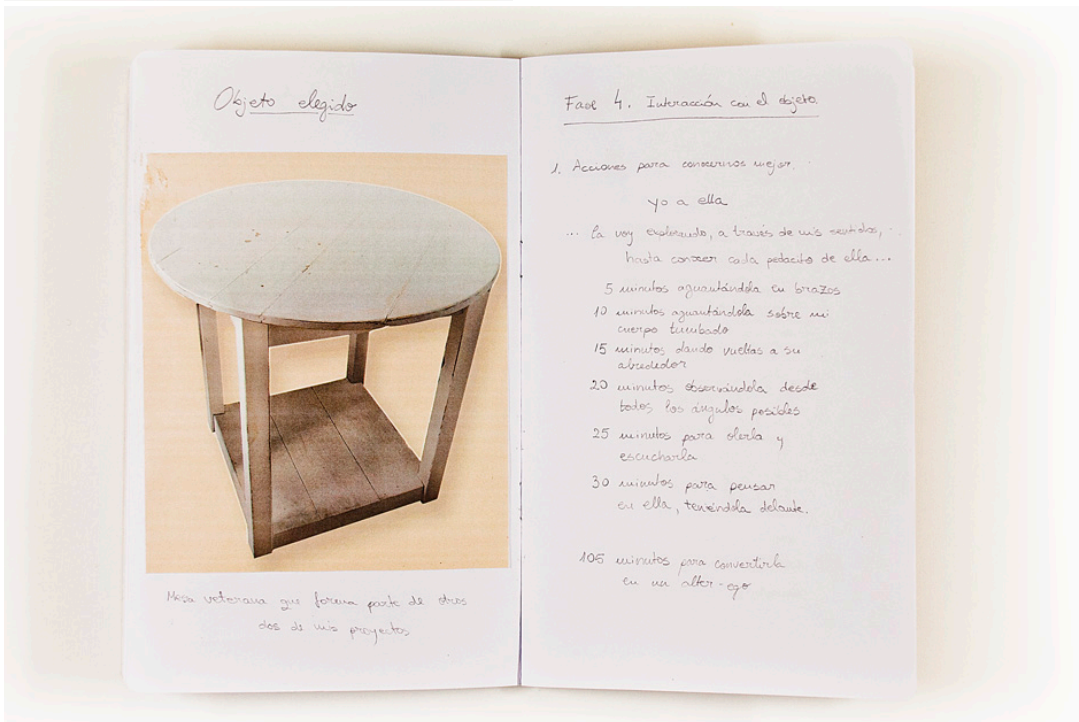 Objeto elegido
Mesa veterana que forma parte de otros
dos de mis proyectos
Fase 4. Interacción con el objeto.
1. Acciones para conocernos mejor.
yo a ella
... la voy explorando, a través de mis sentidos,
hasta conocer cada pedacito de ella...
5 minutos aguantándola en brazos
10 minutos aguantándola sobre mi
cuerpo tumbado
15 minutos dando vueltas a su
alrededor
20 minutos observándola desde
todos los ángulos posibles
25 minutos para olerla y
escucharla
30 minutos para pensar
en ella, teniéndola delante.
105 minutos para convertirla
en un alter-ego